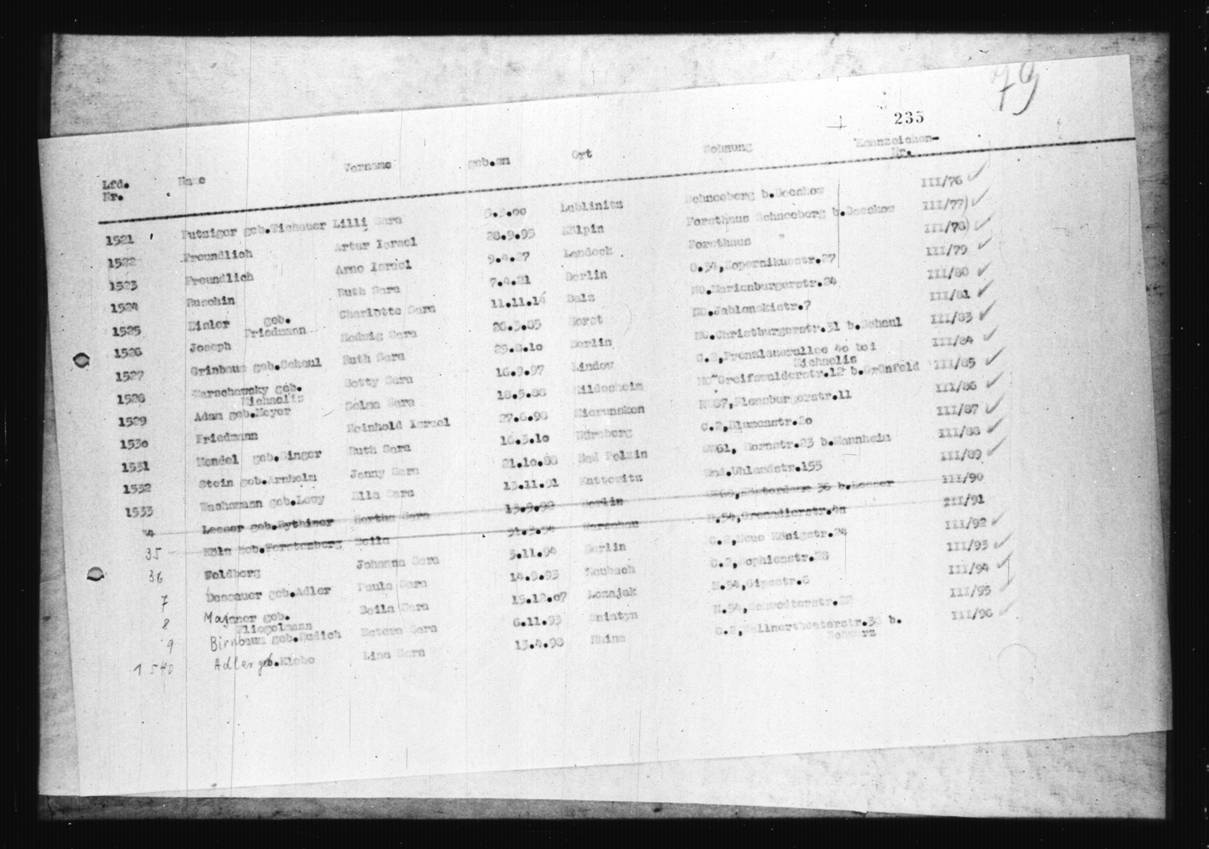 79
235
Lfd. Nr. Name Vorname geb.am Ort Wohnung Kennzeichen-Nr.
1521 Putziger geb. Lilli Sara 6.3.00 Lublinitz Schneeberg b.Beeskow III/76
1522 Freundlich Artur Israel 28.9.95 Külpin Forsthaus Schneeberg b.Beeskow III/77)
1523 Freundlich Arno Israel 9.4.27 Landeck Forsthaus " III/78)
1524 Buschin Ruth Sara 7.4.21 Berlin O.34,Kopernikusstr.27 III/79
1525 geb. Friedmann Charlotte Sara 11.11.14 NO.Marienburgerstr.24 III/80
1526 Joseph Hedwig Sara Horst NO.Jablonskistr.7 III/81
1527 Grinbaum geb.Schaul Ruth Sara Berlin NO.Christburgerstr.31 b.Schaul III/83
1528 Warschawsky geb. Michaelis Betty Sara 16.9.97 Lindow C.2,Prenzlauerallee 40 bei Michaelis III/84
1529 Adam geb.Meyer Selma Sara 18.5.88 Hildesheim NO Greifswalderstr.12 b.Grünfeld III/85
1530 Friedmann Reinhold Israel 27.6.98 NW87,Flensburgerstr.11 III/86
1531 Mendel geb.Singer Ruth Sara 16.3.10 Nürnberg C.2,Blumenstr.80 III/87
1532 Stein geb.Arnheim Jenny Sara 21.10.88 Bad Polzin SW61, Hornstr.23 b.Mannheim III/88
1533 Bachmann geb.Lewy Ella Sara 13.11.91 Kattowitz Uhlandstr.155 III/89
34 Lesser geb.Rythiner Hertha Sara 13.9.98 Berlin b.Lesser III/90
35 geb.Ferstenberg Beila Warschau N.54,Grenadierstr.4a III/91
36 Feldberg Johanna Sara 3.11.94 Berlin C.2,Neue Königstr.24 III/92
7 Dessauer geb.Adler Paula Sara 14.9.93 C.2,Sophienstr.28 III/93
8 Majzner geb. Fliegelmann Beila Sara 15.12.07 Lezajsk N.54,Gipsstr.6 III/94
9 Birnbaum geb.Rudich Sara 6.11.93 Sniatyn N.54, III/95
1540 Adler geb.Klebe Lina Sara 13.4.98 Rhina C.2,Wallnertheaterstr. b. Schwarz III/96